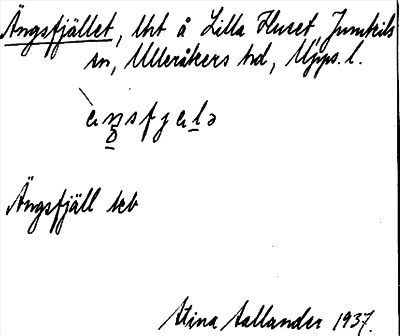 Ängsfjället, Uht å Lilla Huset, Jumkils
sn, Ulleråkers hd, Upps. l.
Ängsfjäll
Stina Aallander 1937.